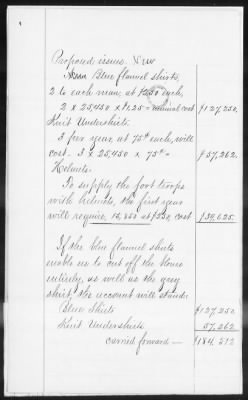 Proposed issues. New
Blue flannel shirts,
2 to each man, at $2.50 each,
2 x 25,450 x $1.25 = annual cost $127,250.
Knit Undershirts.
3 per year, at 75¢ each, will
cost - 3 x 25,450 x 75¢ = $57,262.
Helmets.
To supply the foot troops
with helmets, the first year
will require, at cost
If the blue flannel shirts
enable us to cut off the blouse
entirely, as well as the grey
shirt, the account will stand:
Blue Shirts $127,250
Knit Undershirts 57,262
carried forward — $184,512